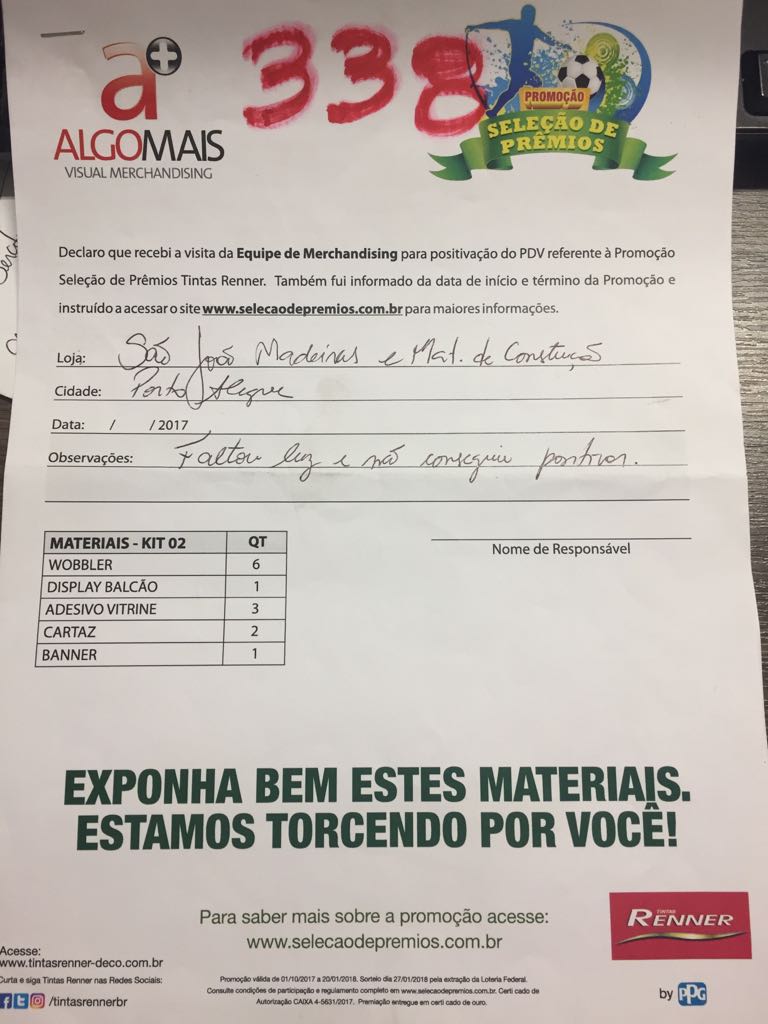 a+
338
PROMOÇÃO
SELEÇÃO DE
PRÊMIOS
ALGOMAIS
VISUAL MERCHANDISING
Declaro que recebi a visita da Equipe de Merchandising para positivação do PDV referente à Promoção
Seleção de Prêmios Tintas Renner. Também fui informado da data de início e término da Promoção e
instruído a acessar o site www.selecaodepremios.com.br para maiores informações.
Loja: São João Madeiras e Mat. de Construção
Cidade: Porto Alegre
Data: / / 2017
Observações: Faltou luz e não conseguiu positivar.
Nome de Responsável
MATERIAIS - KIT 02 QT
WOBBLER 6
DISPLAY BALCÃO 1
ADESIVO VITRINE 3
CARTAZ 2
BANNER 1
EXPONHA BEM ESTES MATERIAIS.
ESTAMOS TORCENDO POR VOCÊ!
Para saber mais sobre a promoção acesse:
www.selecaodepremios.com.br
TINTAS
RENNER
by PPG
Acesse:
www.tintasrenner-deco.com.br
Curta e siga Tintas Renner nas Redes Sociais:
/tintasrennerbr
Promoção válida de 01/10/2017 a 20/01/2018. Sorteio dia 27/01/2018 pela extração da Loteria Federal.
Consulte condições de participação e regulamento completo em www.selecaodepremios.com.br. Certi cado de
Autorização CAIXA 4-5631/2017. Premiação entregue em certi cado de ouro.